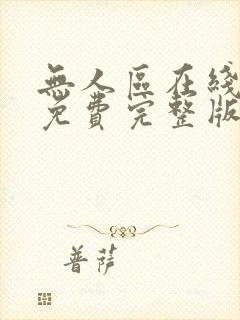 無人區在綫
免費完整版
菩薩